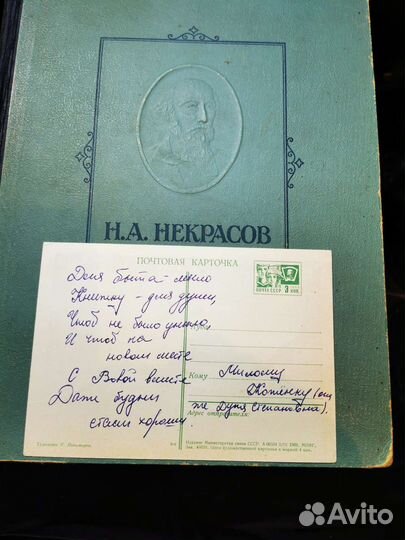 Н.А. НЕКРАСОВ
ПОЧТОВАЯ КАРТОЧКА
ПОЧТА СССР 3 КОП.
Для быта - мыло
Книжку - для души,
Чтоб не было уныло,
И чтоб на
новом месте
С Вовой вместе
Даже будни
стали хороши.
Кому Милому
Котёнку (он
же Дуня Степановна)
Адрес отправителя:
Художник
Издание Министерства связи СССР.
Avito